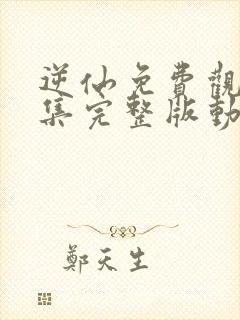 逆仙免費觀
集完整版動
鄭天生